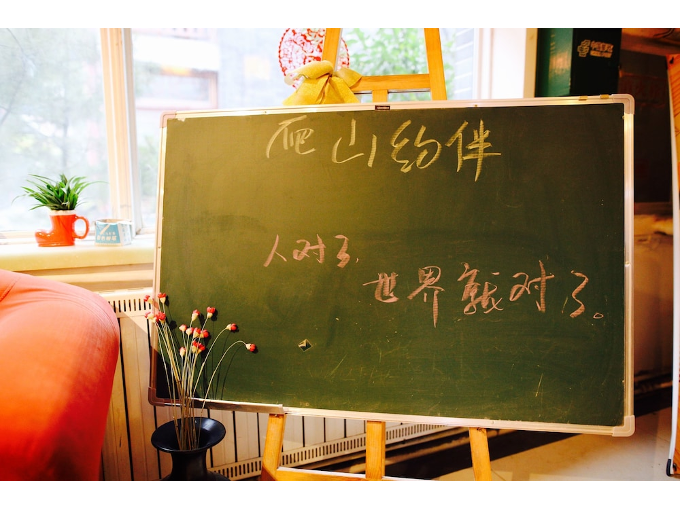 爬山约伴
人对了.
世界就对了。